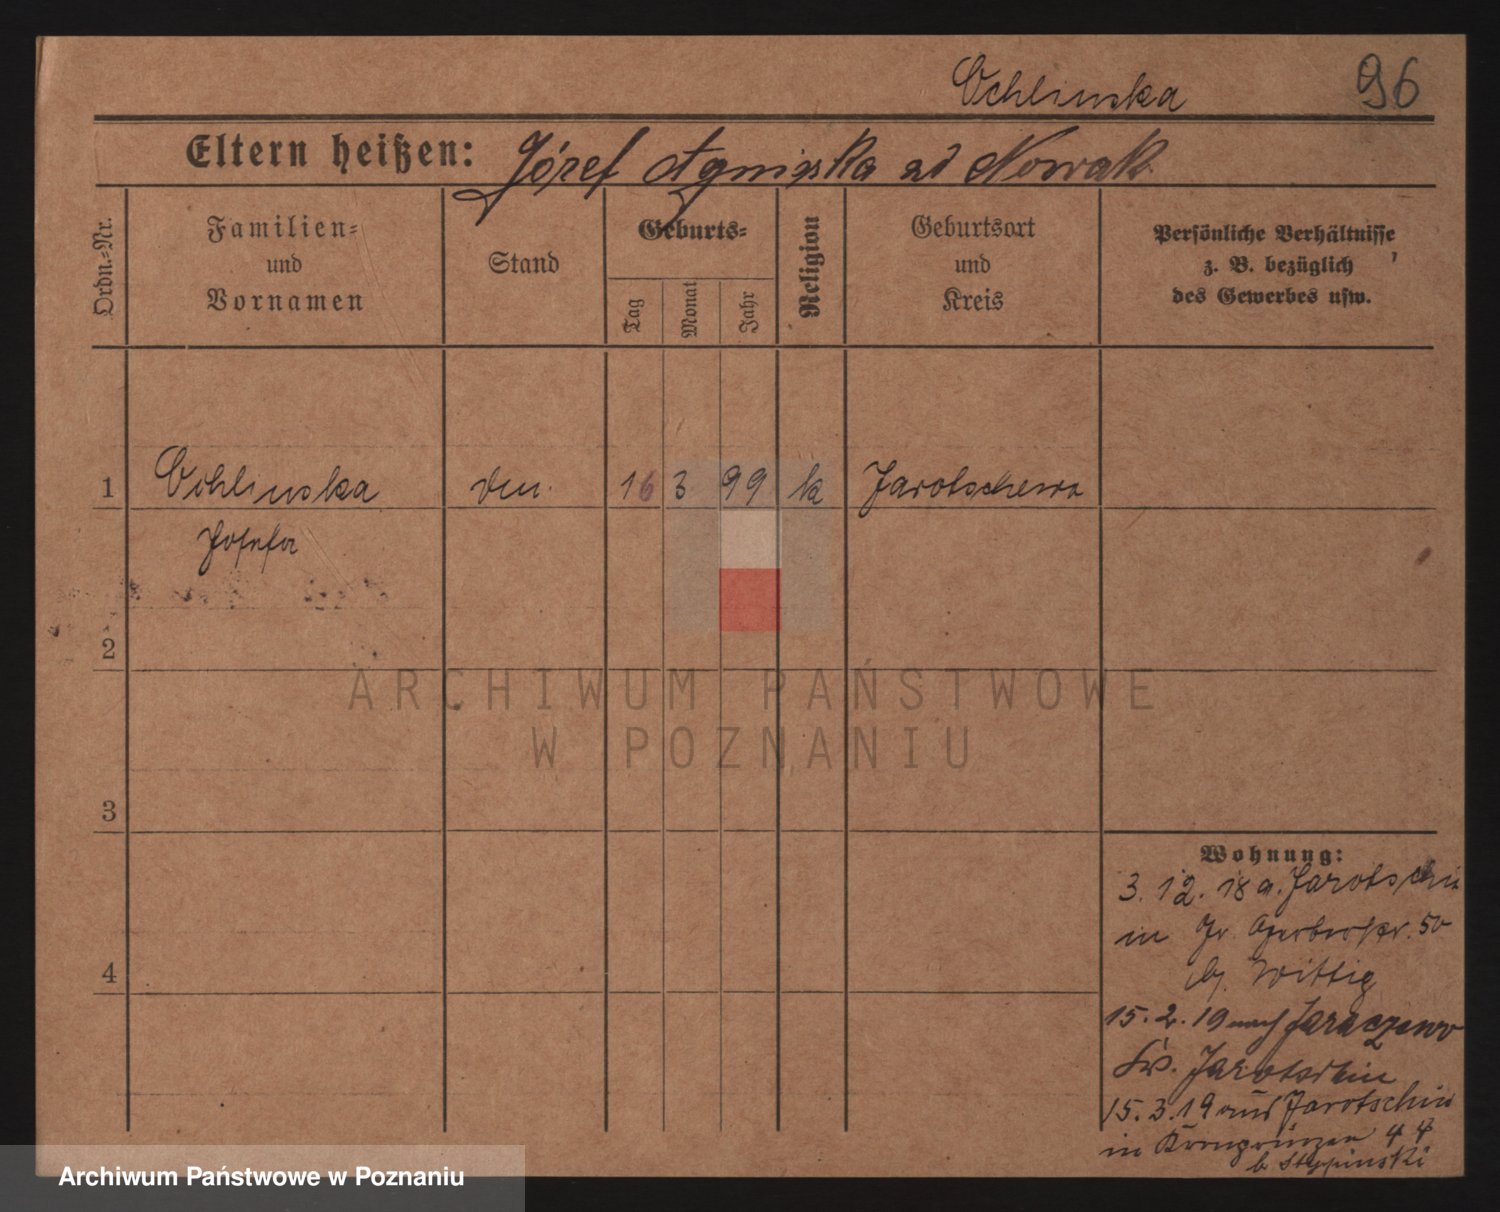 Ochlinska 96
Eltern heißen: Józef Agniszka od Nowak
Ordn.-Nr.
Familien-
und
Vornamen
Stand
Geburts-
Tag
Monat
Jahr
Religion
Geburtsort
und
Kreis
Persönliche Verhältnisse
z. B. bezüglich
des Gewerbes usw.
1 Ochlinska 16 3 99 k Jarotschewo
Josefa
2
ARCHIWUM PAŃSTWOWE
W POZNANIU
3
Wohnung:
3. 12. 18 a. Jarotschin
in Gerberstr. 50
b. Wittig
4
15. 2. 19 nach Jaraczewo
Jarotschin
15. 3. 19 aus Jarotschin
in Kronprinzen 44
b Steppinski
Archiwum Państwowe w Poznaniu